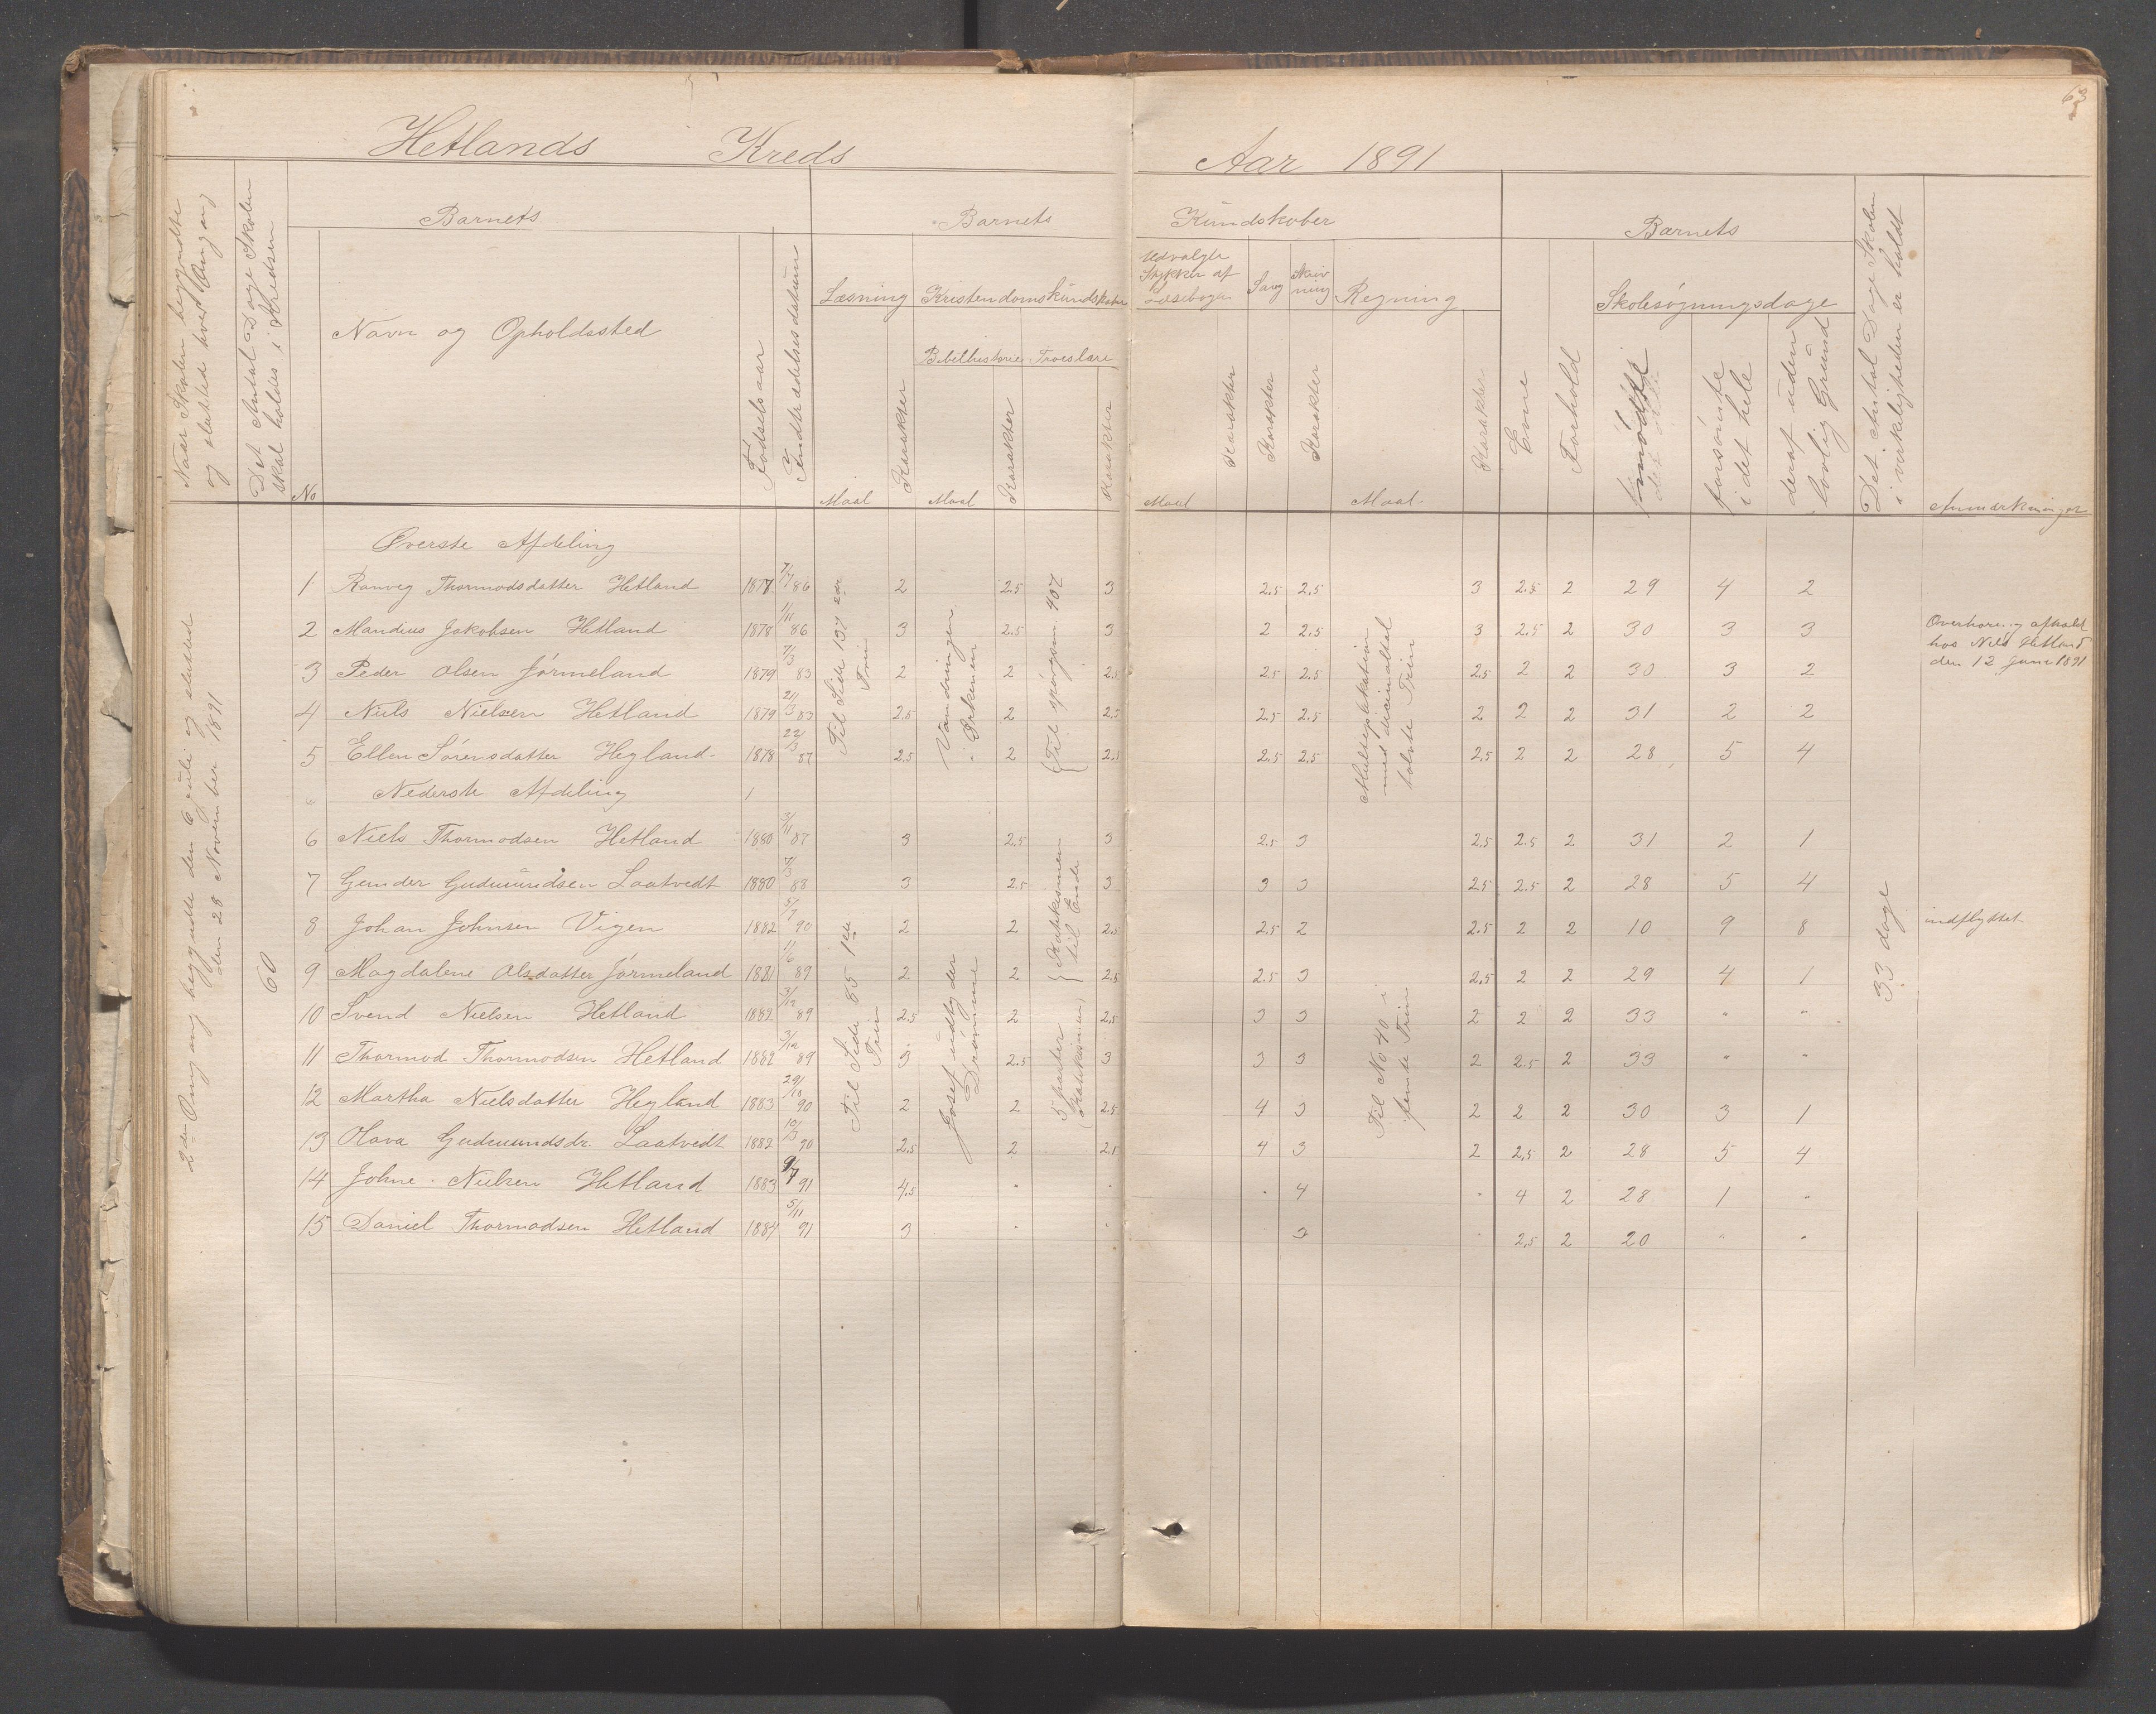 63
Hetlands Kreds Aar 1891
Naar Skolen begyndte og slutted hver Omgang
Det Antal Dage Skolen skal holdes i Kredsen
Barnets
No
Navn og Opholdssted
Fødselsaar
Indtrædelsesdatum
Barnets Kundskaber
Læsning
Maal
Karakter
Kristendomskundskaber
Bibelhistorie
Maal
Karakter
Troeslære
Karakter
Udvalgte Stykker af Læsebogen
Maal
Karakter
Sang
Karakter
Skrivning
Karakter
Regning
Maal
Karakter
Barnets
Evne
Forhold
Skolesøgningsdage
mødte
forsømte i det hele
deraf uden lovlig Grund
Det Antal Dage Skolen i virkeligheden er holdt
Anmærkninger
2den Omgang begyndte den 6 juli og slutted den 28 November 1891
60
Øverste Afdeling
1 Ranveg Thormodsdatter Hetland 1877 7/7 86 2 2.5 3 2.5 2.5 3 2.5 2 29 4 2
2 Mandius Jakobsen Hetland 1878 1/11 86 3 2.5 3 2 2.5 3 2.5 2 30 3 3
3 Peder Olsen Jørmeland 1879 7/3 83 2 2 2.5 2.5 2.5 2.5 2 2 30 3 2
4 Niels Nielsen Hetland 1879 21/3 83 2.5 2 2.5 2.5 2.5 2 2 2 31 2 2
5 Ellen Sørensdatter Hegland 1878 22/3 87 2.5 2 2.5 2.5 2.5 2.5 2 2 28 5 4
Nederste Afdeling
6 Niels Thormodsen Hetland 1880 3/11 87 3 2.5 3 2.5 3 2.5 2.5 2 31 2 1
7 Gunder Gudmundsen Laatvedt 1880 88 3 2.5 3 3 3 2.5 2.5 2 28 5 4
8 Johan Johnsen Vigen 1882 5/7 90 2 2 2.5 2.5 2 2.5 2 2 10 9 8 indflyttet
9 Magdalene Olsdatter Jørmeland 1881 11/6 89 2 2 2.5 2.5 3 2.5 2 2 29 4 1
10 Svend Nielsen Hetland 1882 3/12 89 2.5 2 2.5 3 3 2 2 2 33 " "
11 Thormod Thormodsen Hetland 1882 3/12 89 3 2.5 3 3 3 2 2.5 2 33 " "
12 Martha Nielsdatter Hegland 1883 29/10 90 2 2 2.5 4 3 2 2 2 30 3 1
13 Olava Gudmundsdr. Laatvedt 1882 10/3 90 2.5 2 2.5 4 3 2 2.5 2 28 5 4
14 Johne Nielsen Hetland 1883 9/7 91 4.5 " " " 4 " 4 2 28 1 "
15 Daniel Thormodsen Hetland 1884 5/11 91 3 " " 3 " 2.5 2 20 " "
Til Side 137 2det Trin
Vandringen i Ørkenen
Til spørgsm. 407
Multiplikation med decimaltal tolvte Trin
Til Side 85 1ste Trin
Josef udtyder Drømme
Katekismen til Ende
5 parter Katekismen
Til No 40 i femte Trin
33 dage
Overhøring afholdt
hos Nils Hetland
den 12 juni 1891